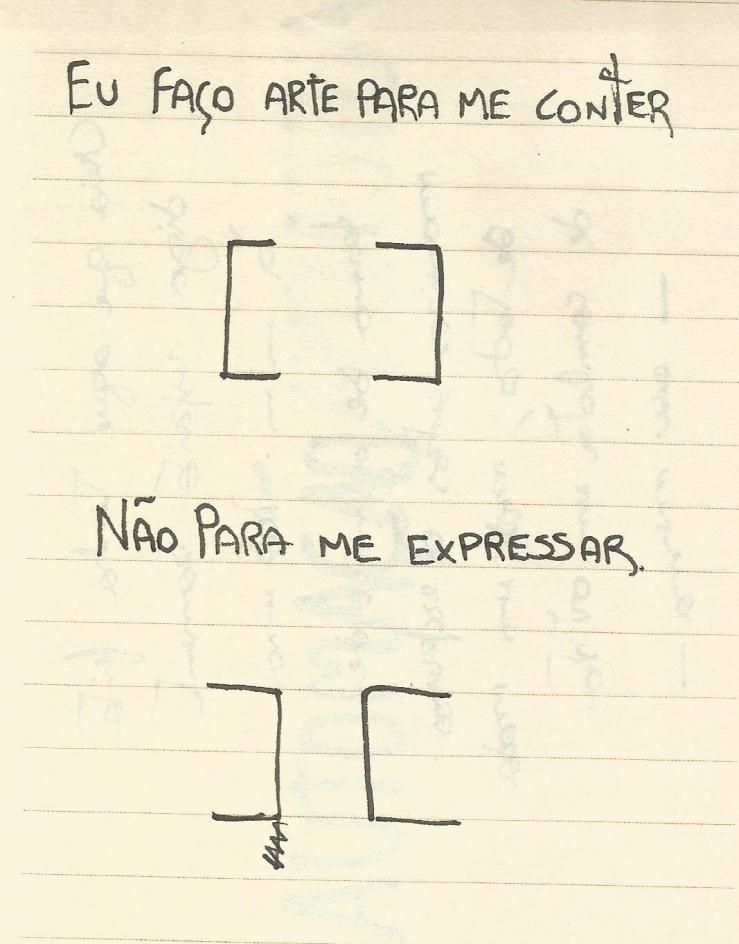 EU FAÇO ARTE PARA ME CONTER
[ ]
NÃO PARA ME EXPRESSAR.
] [